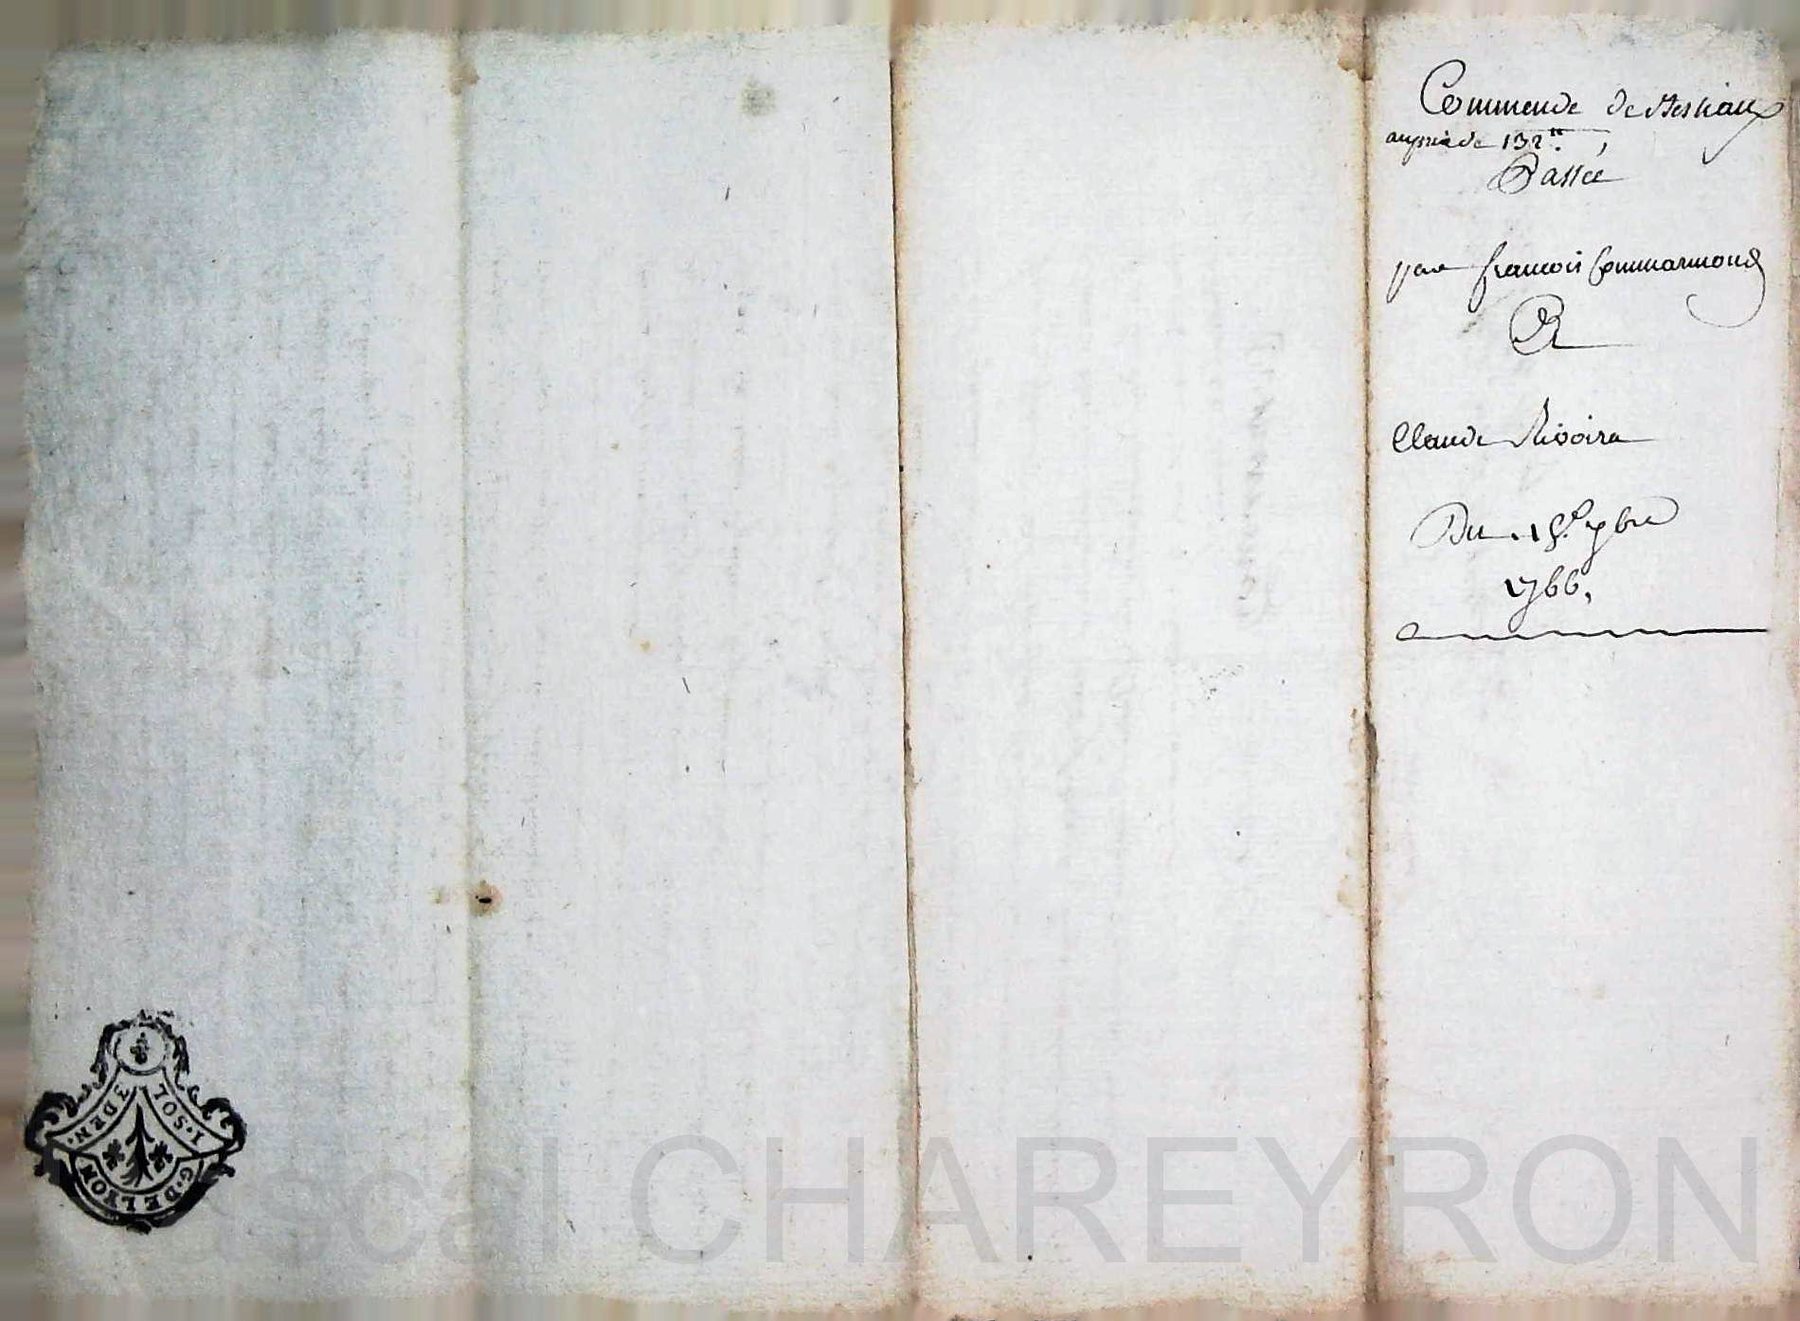 Commende de Bestiaux
au prix de 132 ₶.,
Passée
par francois Commarmond
Et
Claude Rivoire
Du 15.e 7bre
1766,
1·SOL
3 DEN·
G·DE LYON
Pascal CHAREYRON